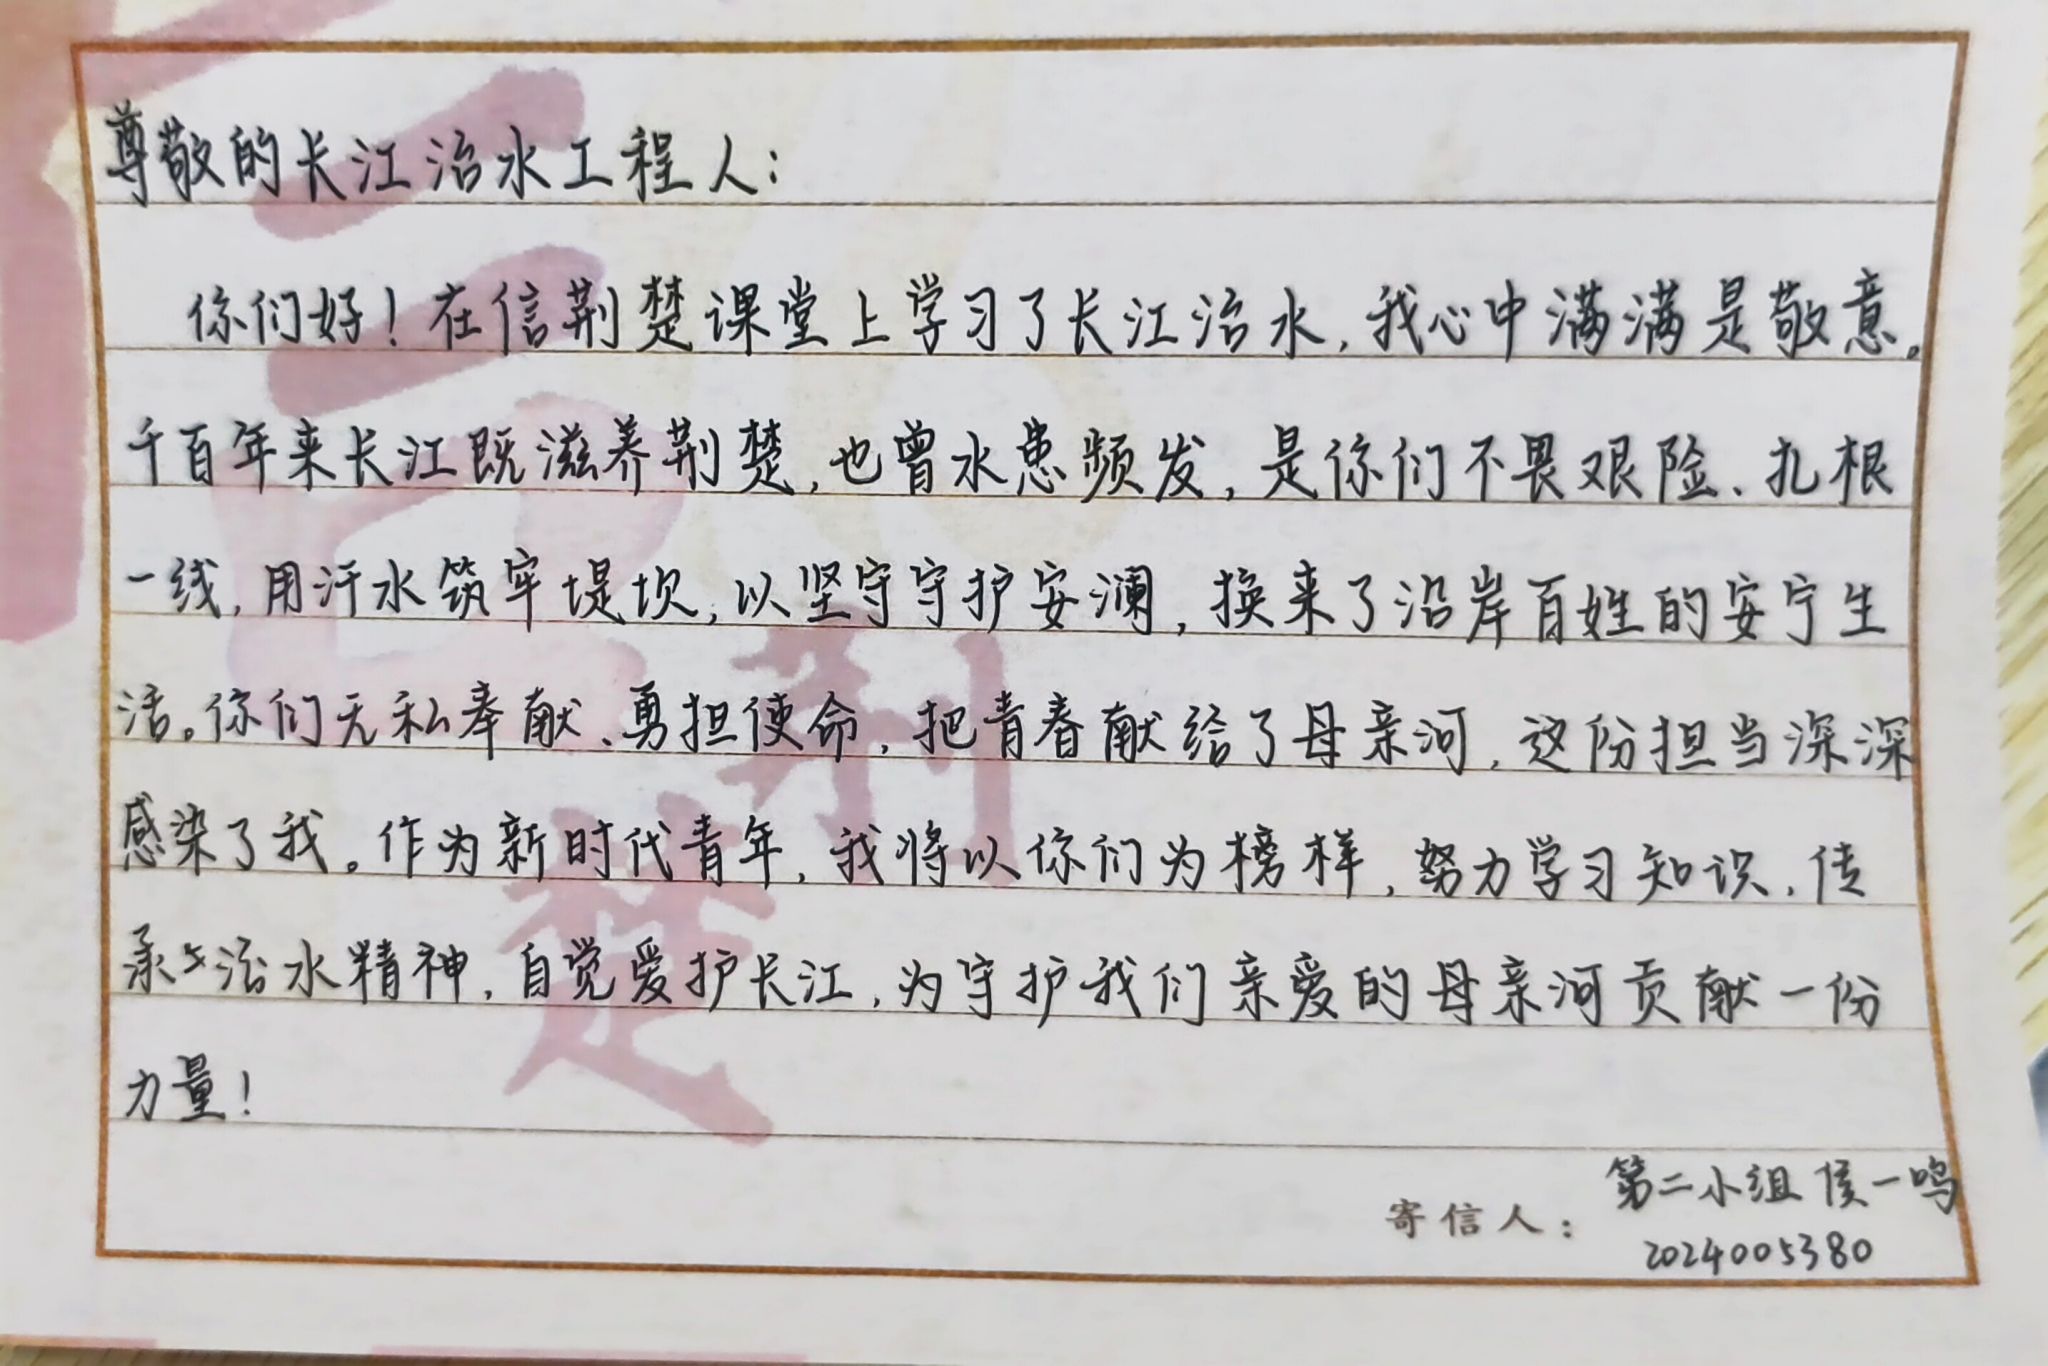 尊敬的长江治水工程人：
你们好！在信荆楚课堂上学习了长江治水，我心中满满是敬意。
千百年来长江既滋养荆楚，也曾水患频发，是你们不畏艰险、扎根
一线，用汗水筑牢堤坝，以坚守守护安澜，换来了沿岸百姓的安宁生
活。你们无私奉献、勇担使命，把青春献给了母亲河，这份担当深深
感染了我。作为新时代青年，我将以你们为榜样，努力学习知识，传
承治水精神，自觉爱护长江，为守护我们亲爱的母亲河贡献一份
力量！
寄信人：第二小组 侯一鸣
2024005380
荆
楚